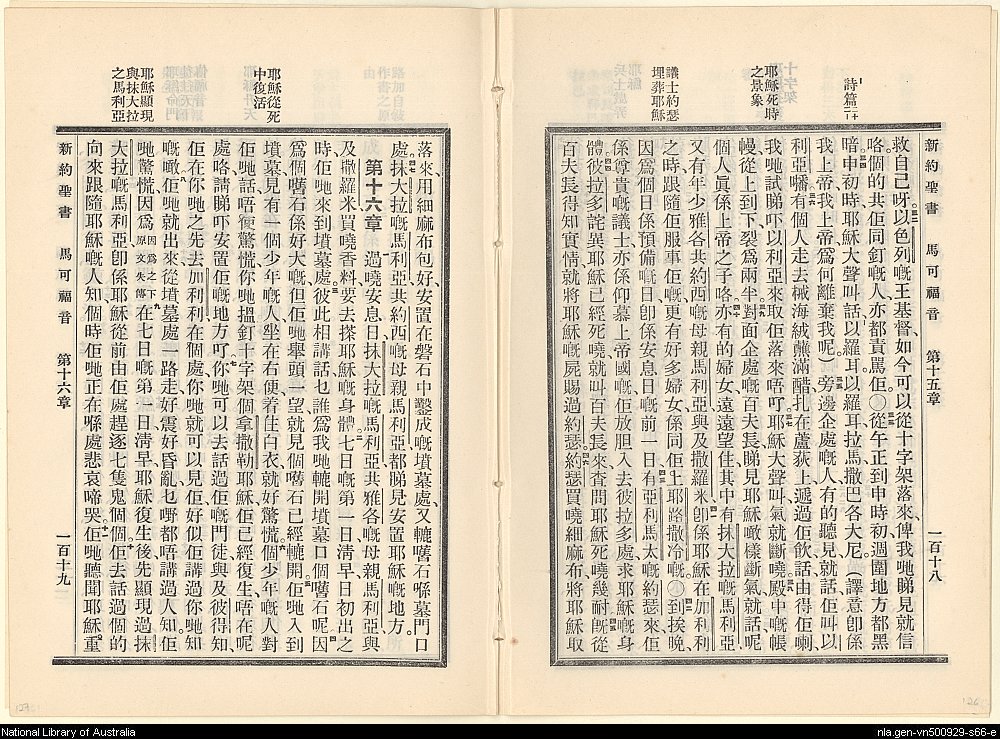 詩篇二十二
耶穌死時
之景象
議士約瑟
埋葬耶穌
新約聖書 馬可福音 第十五章 一百十八
救自己呀以色列嘅王基督、如今可以從十字架落來、俾我哋睇見就信
咯個的共佢同釘嘅人、亦都責罵佢。○從午正到申時初、週圍地方都黑
暗、申初時、耶穌大聲叫話、以羅耳以羅耳拉馬撒巴各大尼、譯意卽係
我上帝我上帝爲何離棄我呢。旁邊企處嘅人有的聽見就話、佢叫以
利亞囉、有個人走去械海絨蘸滿醋、扎在蘆荻上、遞過佢飲、話由得佢喇、
我哋試睇吓以利亞來取佢落來唔叮、耶穌大聲叫、氣就斷嘵、殿中嘅帳
幔、從上到下、裂爲兩半、對面企處嘅百夫長、睇見耶穌噉樣斷氣、就話、呢
個人眞係上帝之子咯、亦有的婦女、遠遠望住、其中有抹大拉嘅馬利亞
又有年少雅各共約西嘅母親馬利亞、與及撒羅米、卽係耶穌在加利利
之時、跟隨佢服事佢嘅、更有好多婦女、係同佢上耶路撒冷嘅。○到挨晚、
因爲個日係預備嘅日、卽係安息日嘅前一日、有亞利馬太嘅約瑟來、佢
係尊貴嘅議士、亦係仰慕上帝國嘅、佢放胆入去彼拉多處、求耶穌嘅身
體、彼拉多詫異耶穌已經死嘵、就叫百夫長來、查問耶穌死嘵幾耐、旣從
百夫長得知實情、就將耶穌嘅屍賜過約瑟、約瑟買嘵細麻布、將耶穌取
耶穌從死
中復活
耶穌顯現
與抹大拉
之馬利亞
落來、用細麻布包好、安置在磐石中鑿成嘅墳墓處、又轆嚿石喺墓門口
處、抹大拉嘅馬利亞共約西嘅母親馬利亞、都睇見安置耶穌嘅地方。
第十六章 過嘵安息日、抹大拉嘅馬利亞共雅各嘅母親馬利亞、與
及撒羅米、買嘵香料、要去搽耶穌嘅身體、七日嘅第一日清早、日初出之
時、佢哋來到墳墓處、彼此相講話、乜誰爲我哋轆開墳墓口個嚿石呢、因
爲個嚿石係好大嘅、但佢哋舉頭一望、就見個嚿石已經轆開、佢哋入到
墳墓、見有一個少年嘅人、坐在右便、着住白衣、就好驚慌、個少年嘅人對
佢哋話、唔使驚慌、你哋搵釘十字架個拿撒勒耶穌、佢已經復生、唔在呢
處咯、請睇吓安置佢嘅地方、你哋可以去話過佢嘅門徒、與及彼得知、
佢在你哋之先去加利利、在個處你哋就可以見佢、好似佢講過你哋知
嘅噉、佢哋就出來、從墳墓處一路走、好震好昏亂、乜嘢都唔講過人知、佢
哋驚慌因爲因爲之下原文失傳在七日嘅第一日清早、耶穌復生後、先顯現過抹
大拉嘅馬利亞、卽係耶穌從前由佢處趕逐七隻鬼個個、佢去話過個的
向來跟隨耶穌嘅人知、個時佢哋正在喺處悲哀啼哭、佢哋聽聞耶穌重
新約聖書 馬可福音 第十六章 一百十九
126
127
National Library of Australia
nla.gen-vn500929-s66-e